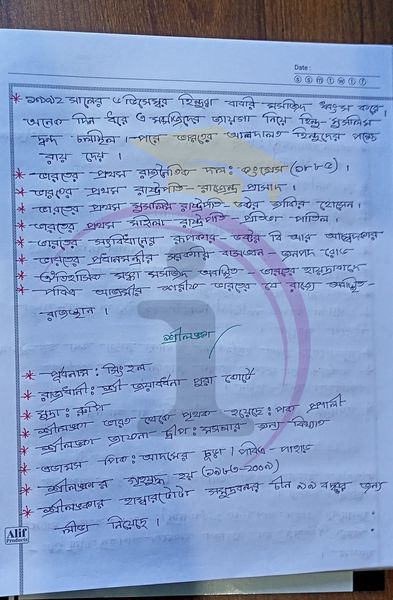 Date :
S S M T W T F
* ১৯৯২ সালের ৬ ডিসেম্বর হিন্দুরা বাবরি মসজিদ ধ্বংস করে।
অনেক দিন ধরে এ মসজিদের জায়গা নিয়ে হিন্দু মুসলিম
দ্বন্দ চলছিল। পরে ভারতের আদালত হিন্দুদের পক্ষে
রায় দেয়।
* ভারতের প্রথম রাজনৈতিক দল: কংগ্রেস (১৮৮৫)।
* ভারতের প্রথম রাষ্ট্রপতি - রাজেন্দ্র প্রসাদ।
* ভারতের প্রথম মুসলিম রাষ্ট্রপতি - ডক্টর জাকির হোসেন।
* ভারতের প্রথম মহিলা রাষ্ট্রপতি - প্রতিভা পাতিল।
* ভারতের সংবিধানের রূপকার - ডক্টর বি আর আম্বেদকার
* ভারতের প্রধানমন্ত্রীর সরকারি বাসভবন - জনপদ রোড
* ঐতিহাসিক মক্কা মসজিদ অবস্থিত - ভারতের হায়দ্রাবাদে
* পবিত্র আজমীর শরীফ ভারতের যে রাজ্যে অবস্থিত -
রাজস্থান।
শ্রীলঙ্কা
* পূর্বনাম: সিংহল
* রাজধানী: শ্রী জয়াবর্ধনা পুরা কোর্টে
* মুদ্রা: রুপি
* শ্রীলঙ্কা ভারত থেকে পৃথক হয়েছে: পক প্রণালী
* শ্রীলঙ্কা জাফনা দ্বীপ: মসলার জন্য বিখ্যাত
* এডামস পিক: আদমের চূড়া। পবিত্র পাহাড়
* শ্রীলঙ্কার গৃহযুদ্ধ হয় (১৯৮৩-২০০৯)
* শ্রীলঙ্কার হাম্বানটোটা সমুদ্রবন্দর চীন ৯৯ বছরের জন্য
লীজ নিয়েছে।
Alif
Products